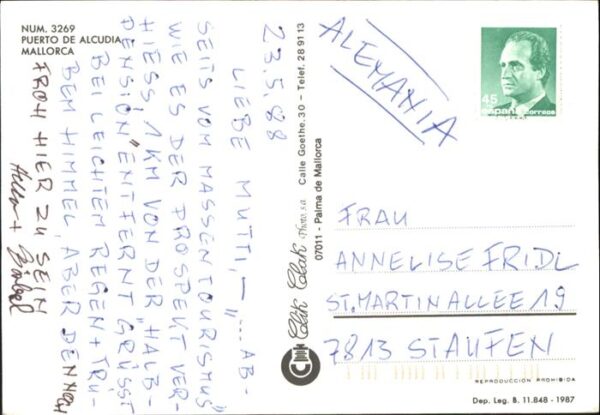 NUM. 3269
PUERTO DE ALCUDIA
MALLORCA
23.5.88
LIEBE MUTTI, — "....AB-
SEITS VOM MASSENTOURISMUS"
WIE ES DER PROSPEKT VER-
HIESS, 1 KM VON DER "HALB-
PENSION" ENTFERNT GRÜSST
BEI LEICHTEM REGEN + TRÜ-
BEM HIMMEL, ABER DENNOCH
FROH HIER ZU SEIN
Clik Clak Photo, s.a. Calle Goethe, 30 – Telef. 28 91 13
07011 - Palma de Mallorca
ALEMANIA
45
España correos
FRAU
ANNELISE FRIDL
ST. MARTINALLEE 19
7813 STAUFEN
REPRODUCCION PROHIBIDA
Dep. Leg. B. 11.848 - 1987